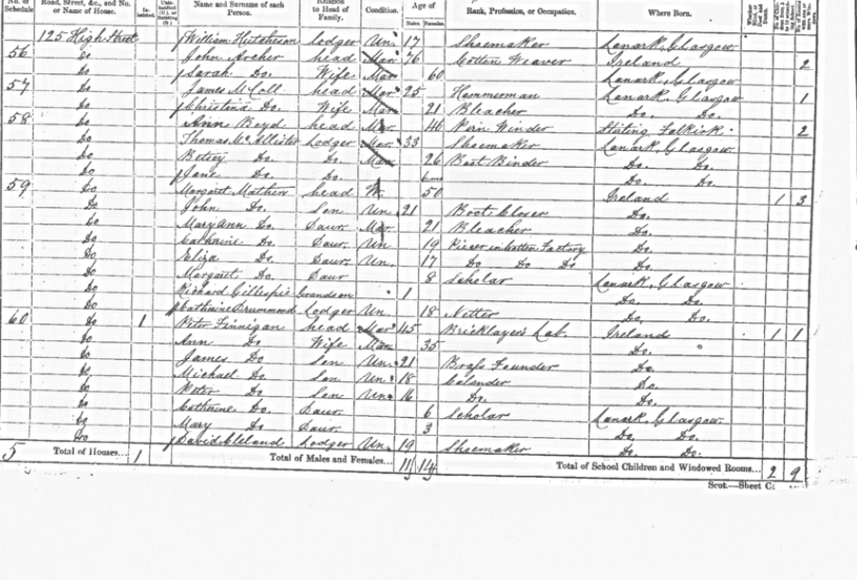 No. of Schedule Road, Street, &c., and No. or Name of House. Name and Surname of each Person. Relation to Head of Family. Condition. Age of Males Females Rank, Profession, or Occupation. Where Born.
125 High Street William Hutchison Lodger Un. 17 Shoemaker Lanark, Glasgow
56 Do John Archer head Mar 76 Cotton Weaver Ireland 2
Do Sarah Do. Wife Mar 60 Lanark, Glasgow
57 Do James McColl head Mar 25 Hammerman Lanark, Glasgow 1
Do Christina Do. Wife Mar 21 Bleacher Do. Do.
58 Do Ann Boyd head 46 Pirn Winder Stirling Falkirk 2
Do Thomas McAllister Lodger Mar 33 Shoemaker Lanark, Glasgow
Do Betsey Do Do. Mar 26 Boot Binder Do. Do.
Do Jane Do. Do. 6 mo Do. Do.
59 Do Margaret head W. 50 Ireland 1 3
Do John Do. Son Un. 21 Boot Closer Do.
Do Mary Ann Do. Daur. 21 Bleacher Do.
Do Catharine Do. Daur. Un 19 in Cotton Factory Do.
Do Eliza Do. Daur. Un. 17 Do Do Do Do.
Do Margaret Do. Daur 8 Scholar Lanark, Glasgow
Do Richard Gillespie Grandson 1 Do. Do.
Do Catharine Drummond Lodger Un. 18 Do. Do.
60 Do 1 Peter Finnigan head Mar 45 Bricklayer's Lab. Ireland 1 1
Do Ann Do Wife Mar 35 Do.
Do James Do Son Un. 21 Brass Founder Do.
Do Michael Do. Son Un. 18 Calender Do.
Do Peter Do Son Un. 16 Do. Do.
Do Catharine Do. Daur. 6 Scholar Lanark, Glasgow
Do Mary Do Daur. 3 Do. Do.
Do David Cleland Lodger Un. 19 Shoemaker Do. Do.
5 Total of Houses... 1 Total of Males and Females... 11 14 Total of School Children and Windowed Rooms... 2 9
Scot.—Sheet C.